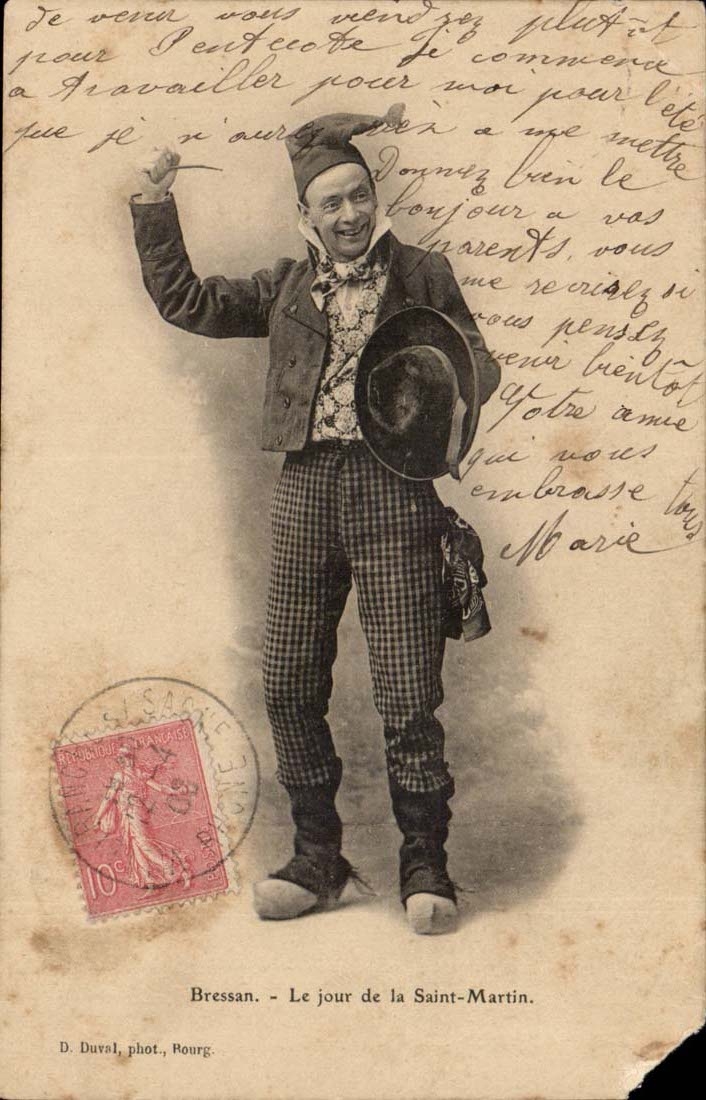 de venir vous viendrez plutôt
pour Pentecote je commence
a travailler pour moi pour l'été
que je n'aurez rien a me mettre
Donnez bien le
bonjour a vos
parents, vous
me recrirez si
vous pensez
venir bientôt
Votre amie
qui vous
embrasse tous
Marie
REPUBLIQUE FRANÇAISE
10c
POSTES
Bressan. - Le jour de la Saint-Martin.
D. Duval, phot., Bourg.